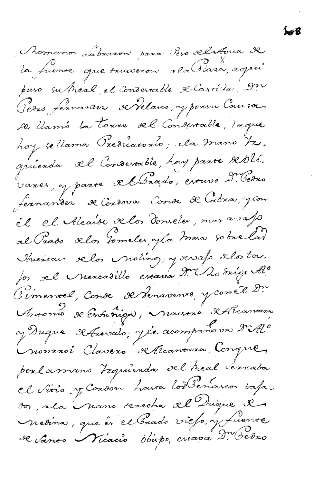 108
Romano labraron para uso del Agua de
la fuente que truxeron a la Plaza, aqui
puso su Real el Condestable de Castilla Dn
Pedro Fernandez de Velasco, y por su Causa
se llamó la Torre del Condestable, la que
hoy se llama Predicatorio, a la mano Iz
quierda del Condestable, hoy parte de Oli
vares, y parte del Prado, estuvo Dn Pedro
Fernandez de Cordova Conde de Cabra, y con
él el Alcaide de los Donceles, mas avajo
al Prado de los Gomeles, y la Mesa sobre las
Huertas de los Molinos, y devajo de los ta
jos del Mercadillo estava Dn Rodrigo Alo
Pimentel, Conde de Venavente, y con el Dn
de Zuñiga, Maestre de Alcantara
y Duque de Arevalo, y le acompañava Dn Alo
Monroi Clavero de Alcantara Conque
por la mano Izquierda del Real cerrava
el Sitio, y Cordon hasta los Peñascos
a la Mano derecha del Duque de
Medina, que es el Prado viejo, y fuente
de Santo Nicacio Obispo, estava Dn Pedro